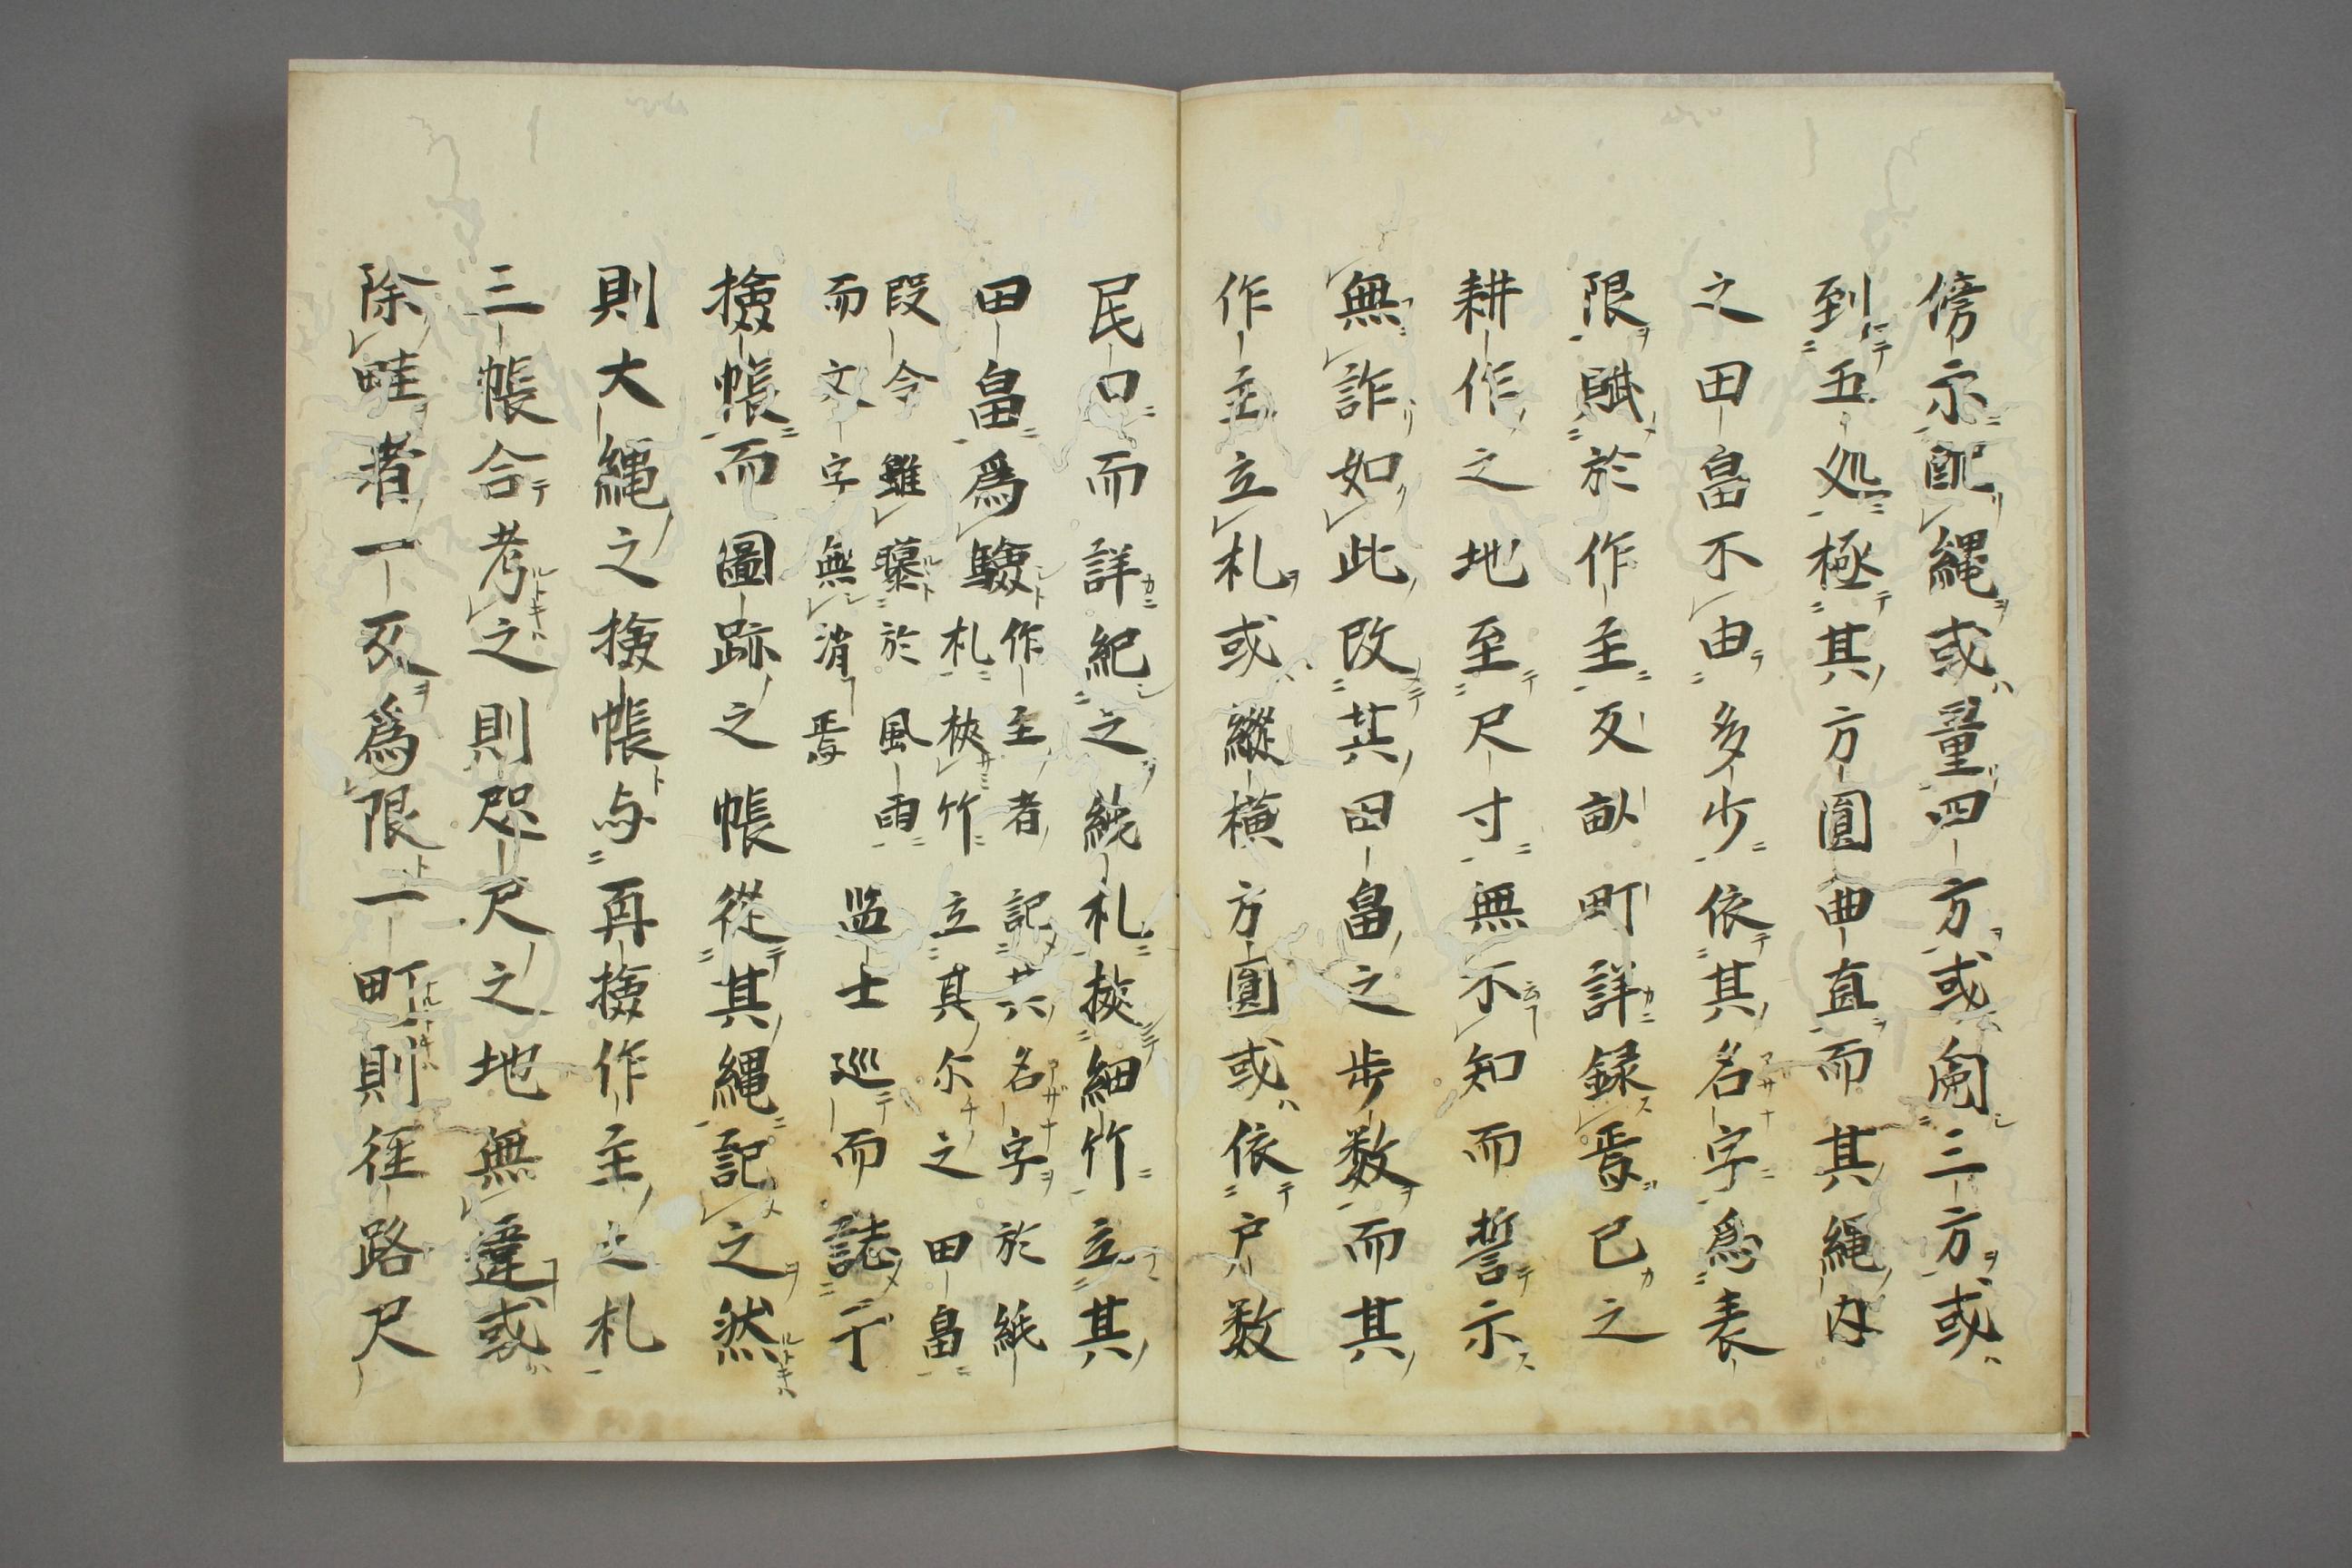 傍示配縄或量四方或匊三方或
到五処極其方圓曲直而其縄内
之田畠不由多少依其名字為表
限賦於作主反畝町詳録焉已之
耕作之地至尺寸無不知而誓示
無詐如此改其田畠之歩数而其
作主立札或縦横方圓或依戸数
民口而詳紀之紙札挾細竹立其
田畠為驗
作主者記其名字於紙
札挾竹立其尓之田畠
叚令雖曝於風雨
而文字無消焉
监士巡而誌于
撿帳而圖跡之帳從其縄記之然
則大縄之撿帳与再撿作主之札
三帳合考之則咫尺之地無違或
除畦者一反為限一町則徑路尺